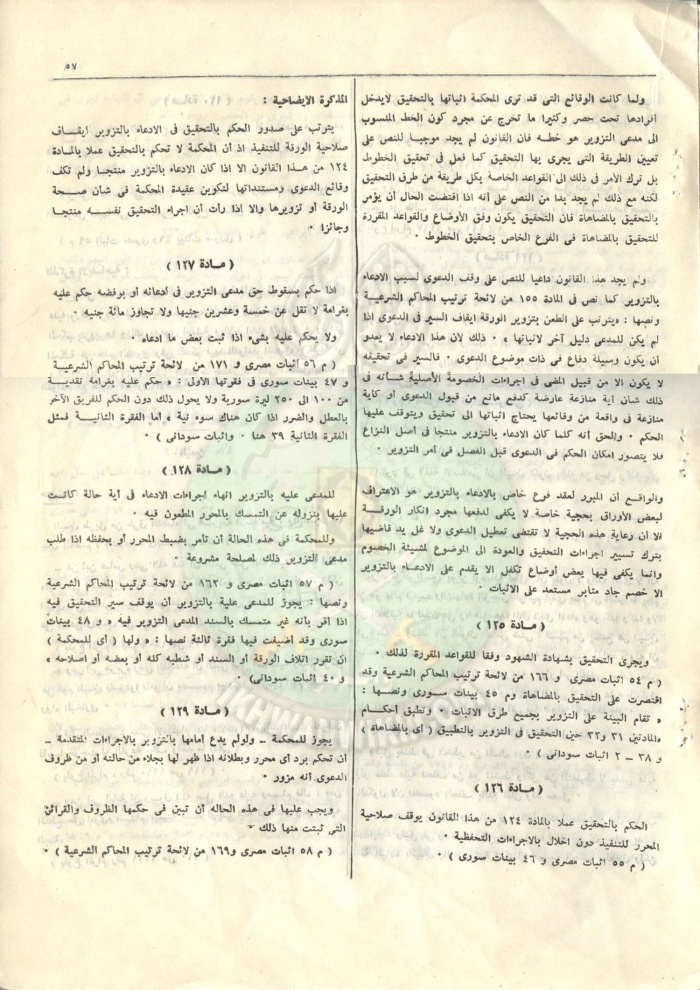 ٥٧
ولما كانت الوقائع التى قد ترى المحكمة اثباتها بالتحقيق لايدخل
افرادها تحت حصر وكثيرا ما تخرج عن مجرد كون الخط المنسوب
الى مدعى التزوير هو خطه فان القانون لم يجد موجبا للنص على
تعيين الطريقة التى يجرى بها التحقيق كما فعل فى تحقيق الخطوط
بل ترك الأمر فى ذلك الى القواعد الخاصة بكل طريقة من طرق التحقيق
لكنه مع ذلك لم يجد بدا من النص على أنه اذا اقتضت الحال أن يؤمر
بالتحقيق بالمضاهاة فان التحقيق يكون وفق الأوضاع والقواعد المقررة
للتحقيق بالمضاهاة فى الفرع الخاص بتحقيق الخطوط ٠
ولم يجد هذا القانون داعيا للنص على وقف الدعوى لسبب الادعاء
بالتزوير كما نص فى المادة ١٥٥ من لائحة ترتيب المحاكم الشرعية
ونصها : «يترتب على الطعن بتزوير الورقة ايقاف السير فى الدعوى اذا
لم يكن للمدعى دليل آخر لاثباتها » ٠ ذلك لأن هذا الادعاء لا يعدو
أن يكون وسيلة دفاع فى ذات موضوع الدعوى ٠ فالسير فى تحقيقه
لا يكون الا من قبيل المضى فى اجراءات الخصومة الأصلية شأنه فى
ذلك شأن أية منازعة عارضة كدفع مانع من قبول الدعوى او كأية
منازعة فى واقعة من وقائعها يحتاج اثباتها الى تحقيق ويتوقف عليها
الحكم ٠ والحق أنه كلما كان الادعاء بالتزوير منتجا فى أصل النزاع
فلا يتصور امكان الحكم فى الدعوى قبل الفصل فى أمر التزوير ٠
والواقع أن المبرر لعقد فرع خاص بالادعاء بالتزوير هو الاعتراف
لبعض الأوراق بحجية خاصة لا يكفى لدفعها مجرد انكار الورقة
الا أن رعاية هذه الحجية لا تقتضى تعطيل الدعوى ولا غل يد قاضيها
بترك تسيير اجراءات التحقيق والعودة الى الموضوع لمشيئة الخصوم
وانما يكفى فيها بعض أوضاع تكفل ألا يقدم على الادعاء بالتزوير
الا خصم جاد مثابر مستعد على الاثبات ٠
( مادة ١٢٥ )
ويجرى التحقيق بشهادة الشهود وفقا للقواعد المقررة لذلك ٠
( م ٥٤ اثبات مصرى و ١٦٦ من لائحة ترتيب المحاكم الشرعية وقد
اقتصرت على التحقيق بالمضاهاة وم ٤٥ بينات سورى ونصها :
« تقام البينة على التزوير بجميع طرق الاثبات ٠ وتطبق أحكام
المادتين ٣١ و٣٢ حين التحقيق فى التزوير بالتطبيق ( أى بالمضاهاة )
و ٣٨ ــ ٢ اثبات سودانى ) ٠
( مادة ١٢٦ )
الحكم بالتحقيق عملا بالمادة ١٢٤ من هذا القانون يوقف صلاحية
المحرر للتنفيذ دون اخلال بالاجراءات التحفظية ٠
( م ٥٥ اثبات مصرى و ٤٦ بينات سورى ) ٠
المذكرة الايضاحية :
يترتب على صدور الحكم بالتحقيق فى الادعاء بالتزوير ايقاف
صلاحية الورقة للتنفيذ اذ أن المحكمة لا تحكم بالتحقيق عملا بالمادة
١٢٤ من هذا القانون الا اذا كان الادعاء بالتزوير منتجا ولم تكف
وقائع الدعوى ومستنداتها لتكوين عقيدة المحكمة فى شأن صحة
الورقة أو تزويرها والا اذا رأت أن اجراء التحقيق نفسه منتجا
وجائزا ٠
( مادة ١٢٧ )
اذا حكم بسقوط حق مدعى التزوير فى ادعائه أو برفضه حكم عليه
بغرامة لا تقل عن خمسة وعشرين جنيها ولا تجاوز مائة جنيه ٠
ولا يحكم عليه بشىء اذا ثبت بعض ما ادعاه ٠
( م ٥٦ اثبات مصرى و ١٧١ من لائحة ترتيب المحاكم الشرعية
و ٤٧ بينات سورى فى فقرتها الأولى : « حكم عليه بغرامة نقدية
من ١٠٠ الى ٢٥٠ ليرة سورية ولا يحول ذلك دون الحكم للفريق الآخر
بالعطل والضرر اذا كان هناك سوء نية » أما الفقرة الثانية فمثل
الفقرة الثانية ٣٩ هنا ٠ واثبات سودانى ) ٠
( مادة ١٢٨ )
للمدعى عليه بالتزوير انهاء اجراءات الادعاء فى أية حالة كانت
عليها بنزوله عن التمسك بالمحرر المطعون فيه ٠
وللمحكمة فى هذه الحالة أن تأمر بضبط المحرر أو بحفظه اذا طلب
مدعى التزوير ذلك لمصلحة مشروعة ٠
( م ٥٧ اثبات مصرى و ١٦٢ من لائحة ترتيب المحاكم الشرعية
ونصها : يجوز للمدعى علية بالتزوير أن يوقف سير التحقيق فيه
اذا أقر بأنه غير متمسك بالسند المدعى التزوير فيه » و ٤٨ بينات
سورى وقد أضيفت فيها فقرة ثالثة نصها : « ولها ( أى للمحكمة )
أن تقرر اتلاف الورقة أو السند أو شطبه كله أو بعضه أو اصلاحه »
و ٤٠ اثبات سودانى)
( مادة ١٢٩ )
يجوز للمحكمة ــ ولولم يدع أمامها بالتزوير بالاجراءات المتقدمة ــ
أن تحكم برد أى محرر وبطلانه اذا ظهر لها بجلاء من حالته أو من ظروف
الدعوى أنه مزور ٠
ويجب عليها فى هذه الحاله أن تبين فى حكمها الظروف والقرائن
التى ثبتت منها ذلك ٠
( م ٥٨ اثبات مصرى و ١٦٩ من لائحة ترتيب المحاكم الشرعية ) ٠